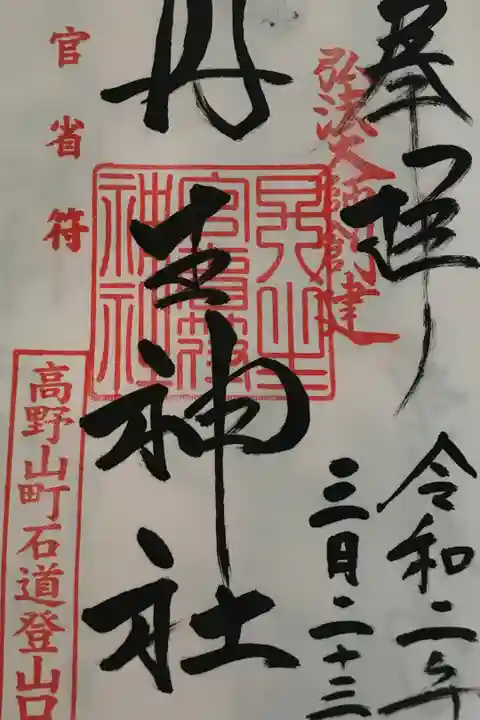 奉拝
弘法大師創建
令和二年
三月二十三
丹生神社
丹生
官省符
神社
官省符
高野山町石道登山口